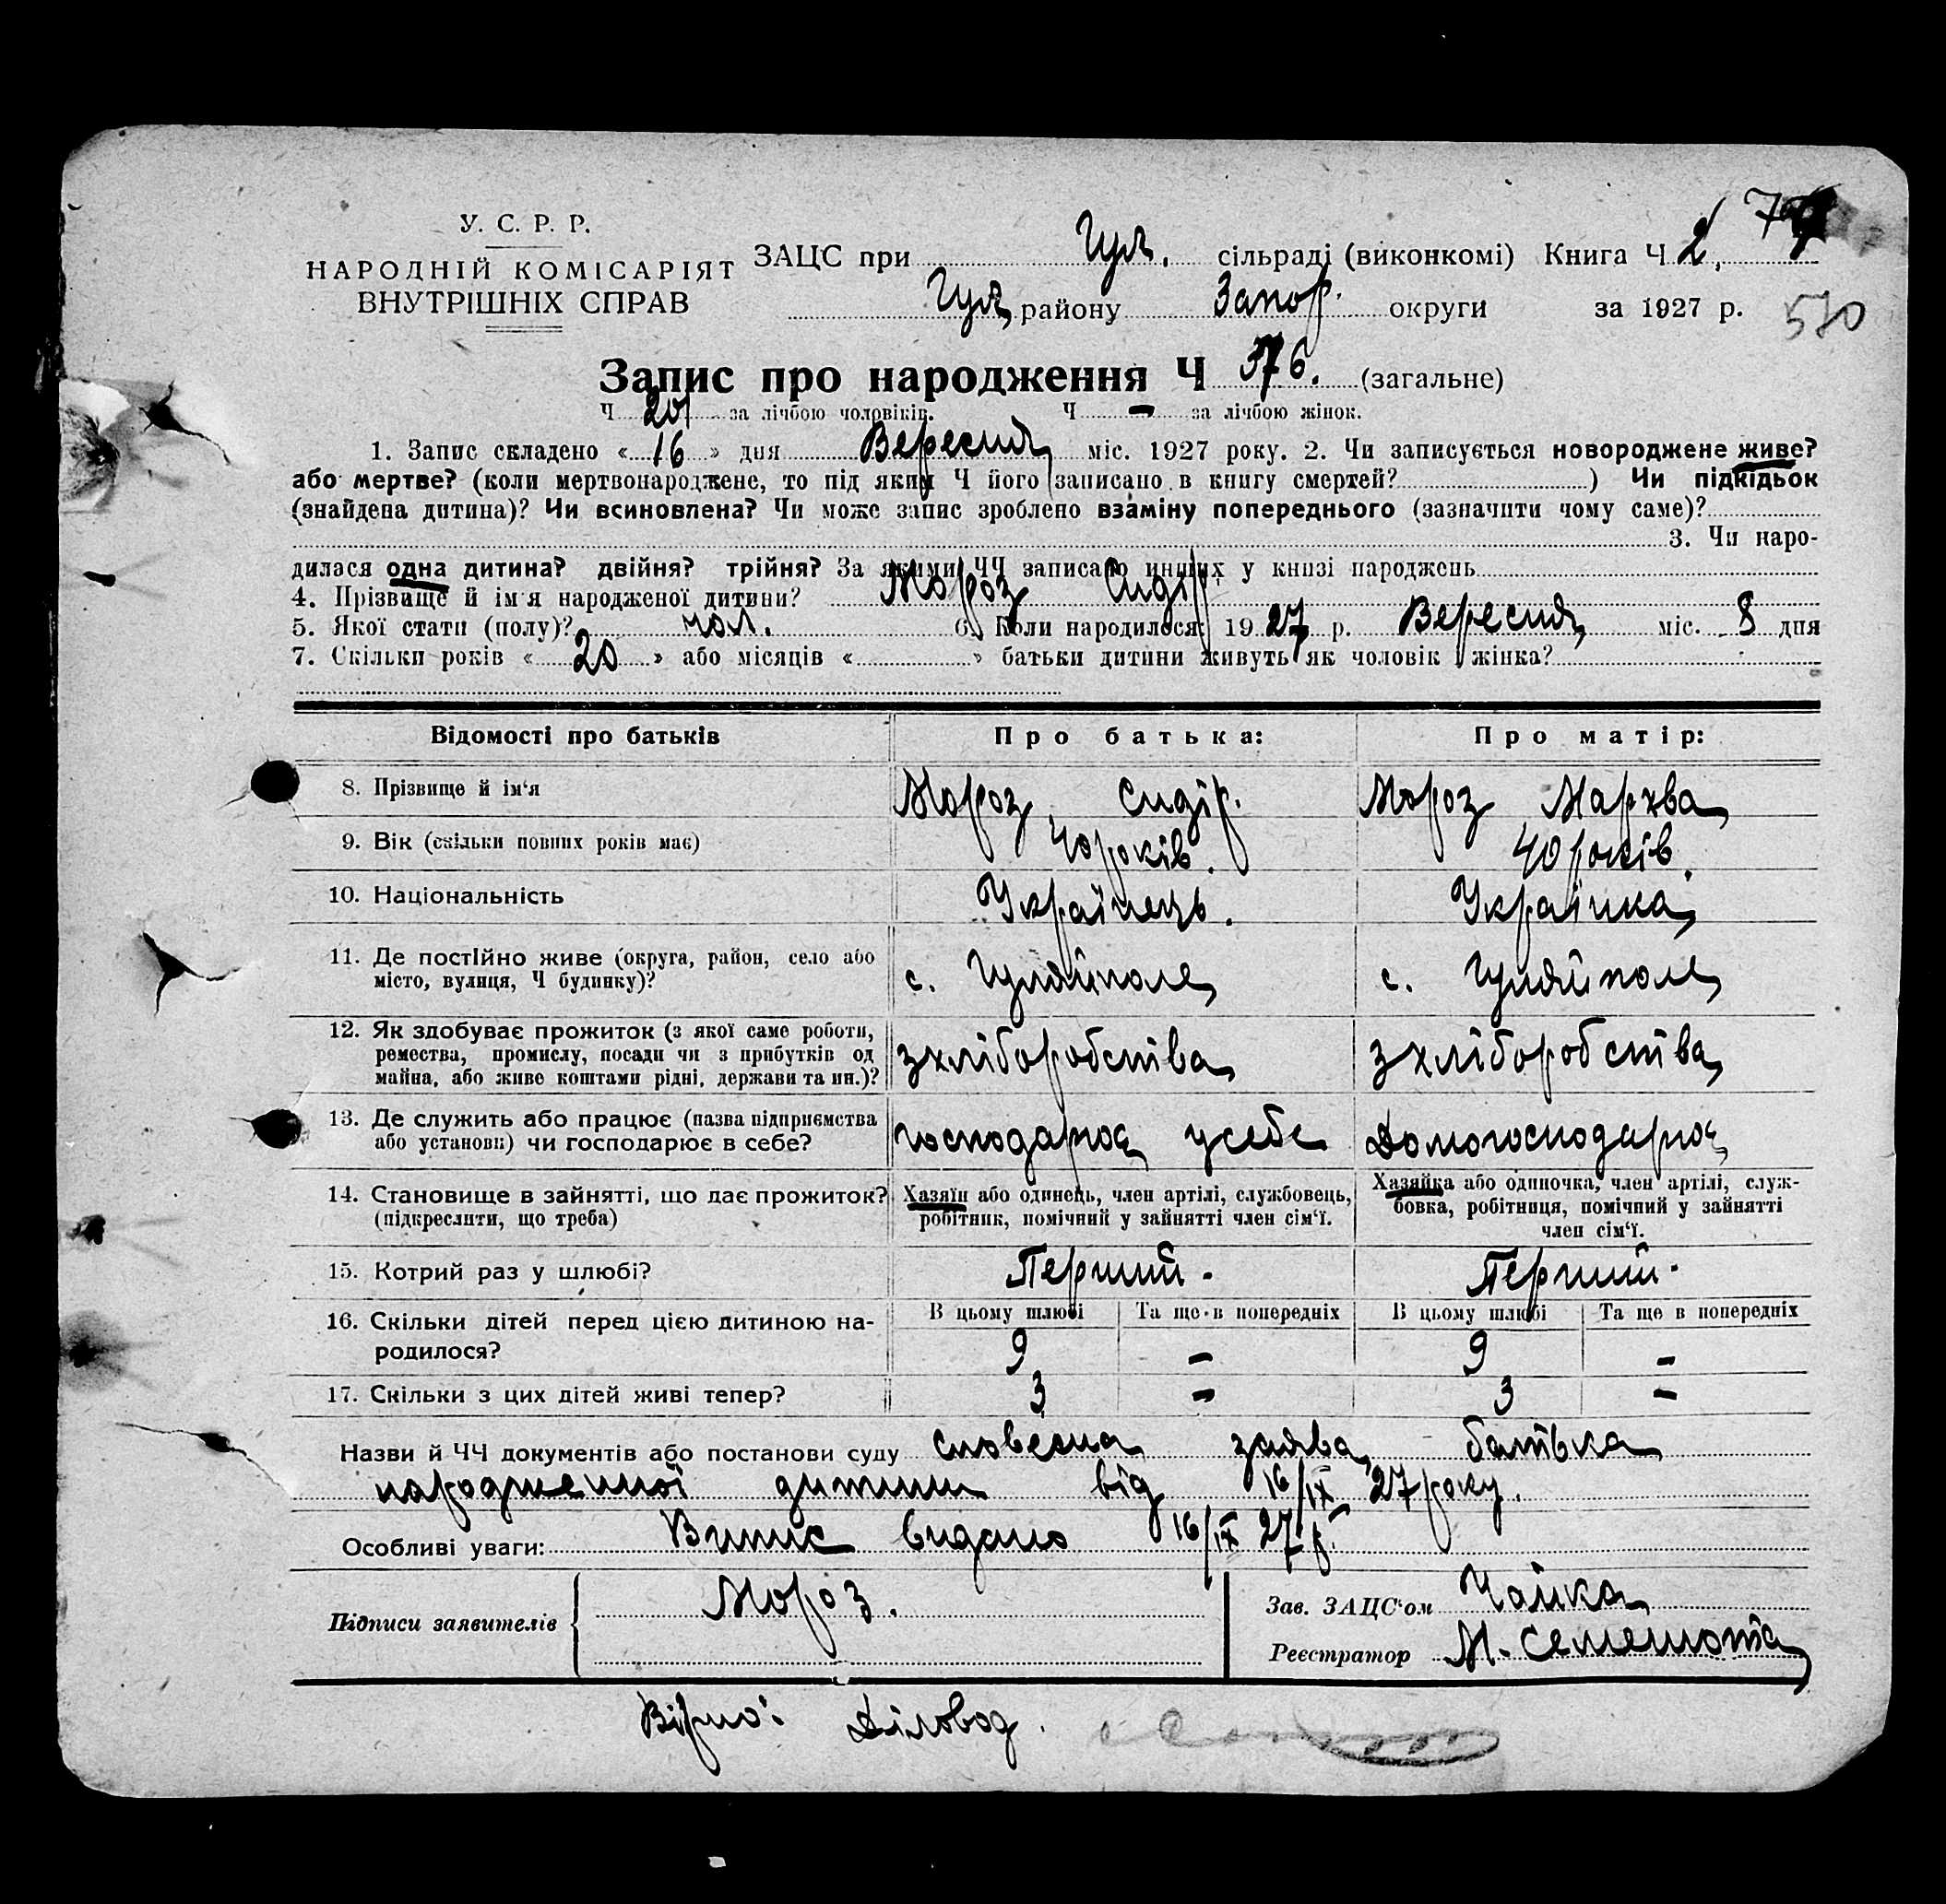 У. С. Р. Р.
НАРОДНІЙ КОМІСАРІЯТ
ВНУТРІШНІХ СПРАВ
ЗАЦС при Гул. сільраді (виконкомі) Книга Ч 2,
Гул району Запор. округи за 1927 р.
Запис про народження Ч 376. (загальне)
Ч 201 за лічбою чоловіків. Ч — за лічбою жінок.
1. Запис складено «16» дня Вересня міс. 1927 року. 2. Чи записується новороджене живе?
або мертве? (коли мертвонароджене, то під яким Ч його записано в книгу смертей? ) Чи підкідьок
(знайдена дитина)? Чи всиновлена? Чи може запис зроблено взаміну попереднього (зазначити чому саме)?
3. Чи наро-
дилася одна дитина? двійня? трійня? За якими ЧЧ записано инших у книзі народжень
4. Прізвище й ім'я народженої дитини? Мороз Сидір
5. Якої стати (полу)? чол. 6. Коли народилося: 1927 р. Вересня міс. 8 дня
7. Скільки років «20» або місяців « » батьки дитини живуть як чоловік і жінка?
Відомості про батьків Про батька: Про матір:
8. Прізвище й ім'я Мороз Сидір. Мороз Мархва
9. Вік (скільки повних років має) 40 років. 40 років.
10. Національність Українець. Українка
11. Де постійно живе (округа, район, село або
місто, вулиця, Ч будинку)? с. Гуляйполе с. Гуляйполе
12. Як здобуває прожиток (з якої саме роботи,
ремества, промислу, посади чи з прибутків од
майна, або живе коштами рідні, держави та ин.)? з хліборобства з хліборобства
13. Де служить або працює (назва підприємства
або установи) чи господарює в себе? господарює у себе Домогосподарює
14. Становище в зайнятті, що дає прожиток?
(підкреслити, що треба)
Хазяїн або одинець, член артілі, службовець,
робітник, помічний у зайнятті член сім'ї.
Хазяйка або одиночка, член артілі, служ-
бовка, робітниця, помічний у зайнятті
член сім'ї.
15. Котрий раз у шлюбі? Перший. Перший.
16. Скільки дітей перед цією дитиною на-
родилося?
В цьому шлюбі Та ще в попередніх В цьому шлюбі Та ще в попередніх
9 — 9 —
17. Скільки з цих дітей живі тепер? 3 — 3 —
Назви й ЧЧ документів або постанови суду словесна заява батька
народженної дитини від 16/IX 27 року.
Особливі уваги: Витис видано 16/IX 27 р.
Підписи заявителів Мороз.
Зав. ЗАЦС'ом Чайка
Реєстратор М. Семенота
Вірно: Діловод.